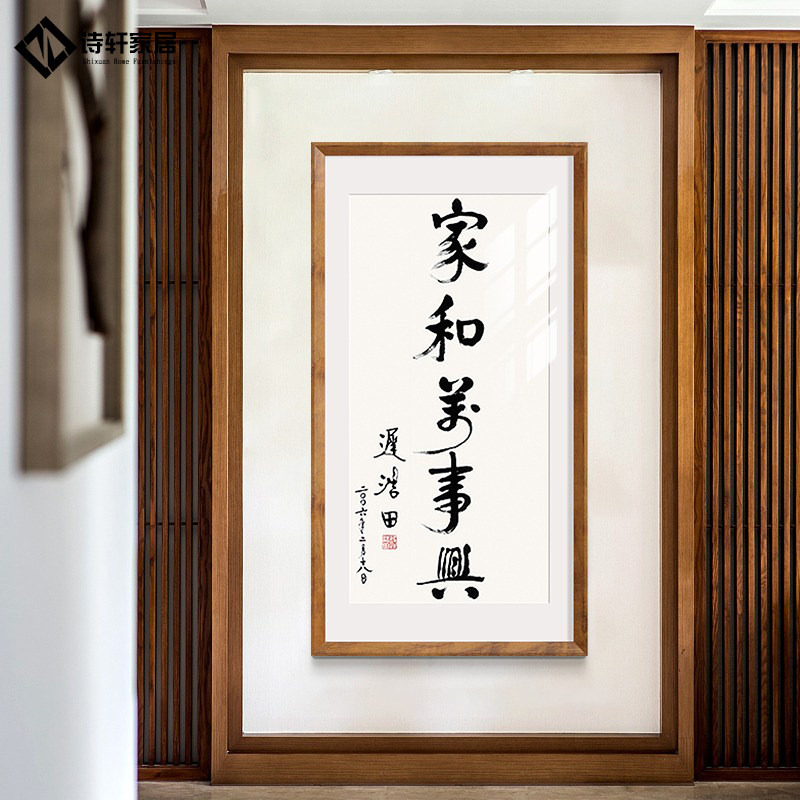 诗轩家居
Shixuan Home Furnishings
家和萬事興
遲浩田
二〇〇六年二月十八日